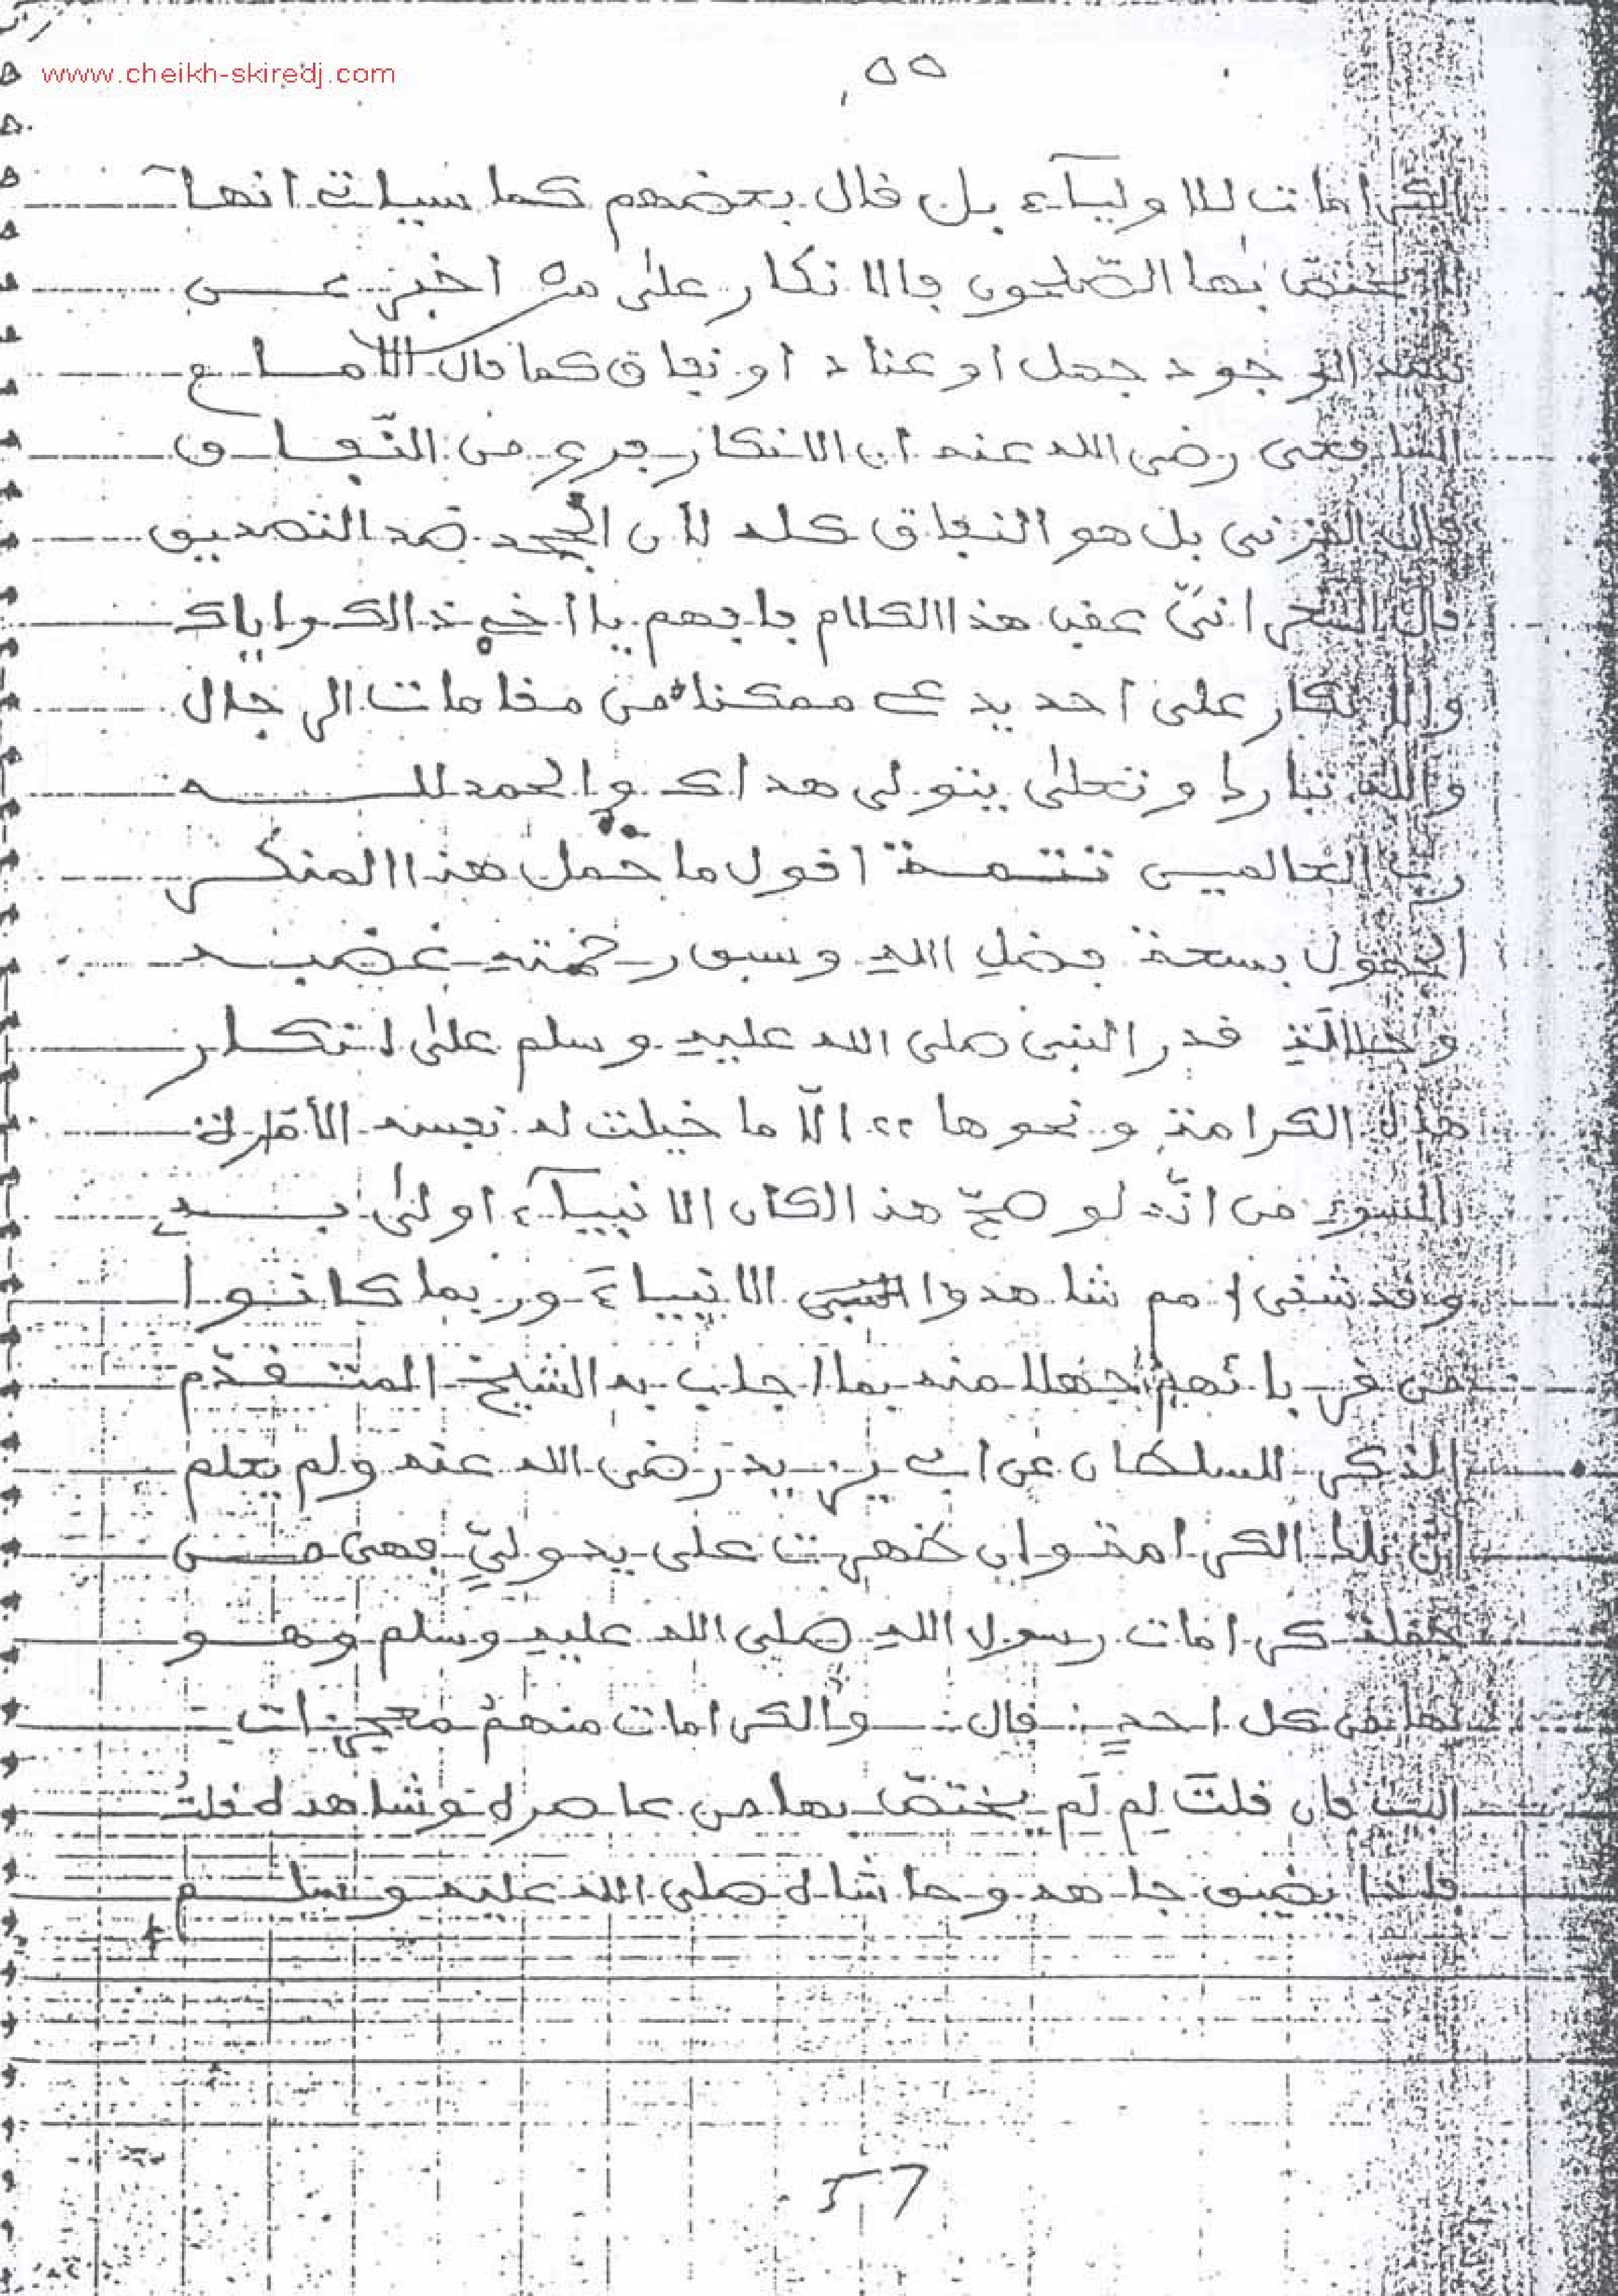 www.cheikh-skiredj.com
٥٥
الكرامات للاوليآء بل قال بعضهم كما سيات انها
بها الصّلحون والانكار على من اخبر عن
الوجود جهل او عناد او نفاق كما قال الامام
الشافعى رضى الله عنه ان الانكار فرع من النّفاق
قال بل هو النفاق كله لأن الجحد ضد التصديق
قال الشعرانىّ عقب هذا الكلام فافهم يا اخى ذالك واياك
والانكار على احد يدعى ممكنا من مقامات الرجال
والله تبارك وتعلى يتولى هداك والحمد لله
رب العالمين تتمة اقول ما حمل هذا المنكر
بسعة فضل الله وسبق رحمته غضبه
وجلالة قدر النبى صلى الله عليه وسلم على انكار
هذه الكرامة ونحوها ،، الّا ما خيلت له نفسه الأمّارة
بالسوء من انّه لو صحّ هذا لكان الانبيآء اولى به
وقد شقى امم شاهدوا الانبياءَ وربما كانوا
من قربائهم جهلا منه بما اجاب به الشيخ المتقدّم
الذكر للسلطان عن ابى يزيد رضى الله عنه ولم يعلم
ان تلك الكرامة وان ظهرت على يد ولىٍّ فهى من
جملة كرامات رسول الله صلى الله عليه وسلم وهو
كل احدٍ قال والكرامات منهمُ معجزات
البيت فان قلتَ لِم لَم يختصّ بها من عاصره وشاهده قلتُ
فلذا يضيق جاهه وحاشاه صلى الله عليه وسلم
57